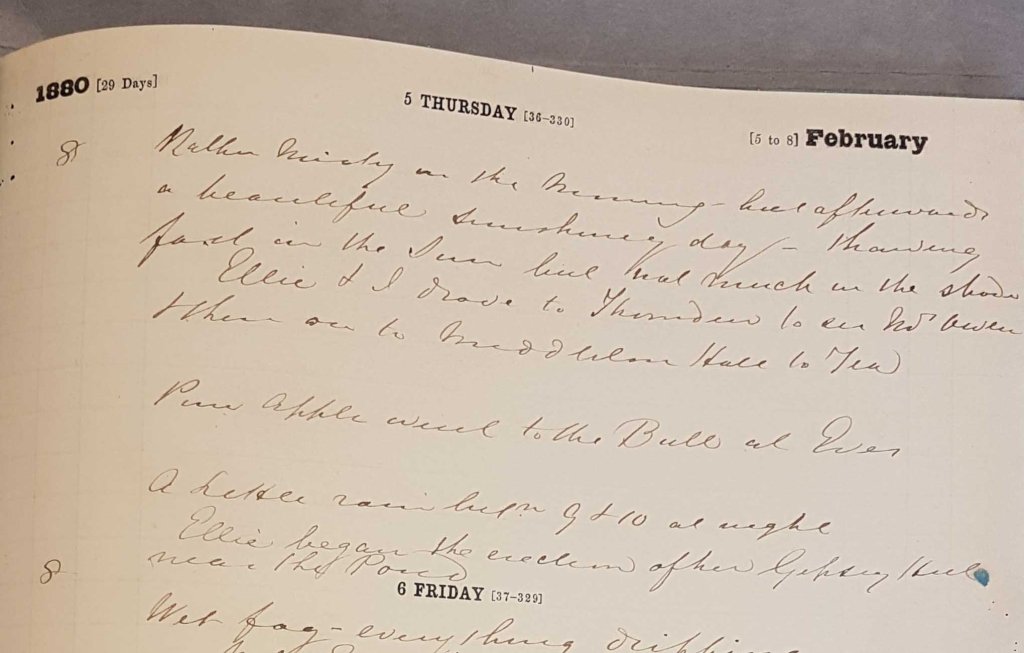 1880 [29 Days]
5 THURSDAY [36-330]
[5 to 8] February
8
Rather Misty in the Morning - but afterwards
a beautiful sunshiny day - thawing
fast in the Sun but not much in the shade
Ellie & I drove to Thorndon to see Mrs Owen
& then on to Middleton Hall to Tea
Pine Apple went to the Bull at Eves
A Little rain betwn 9 & 10 at night
Ellie began the erection of her Gipsey Hut
near the Pond
8
6 FRIDAY [37-329]
Wet fog - everything dripping